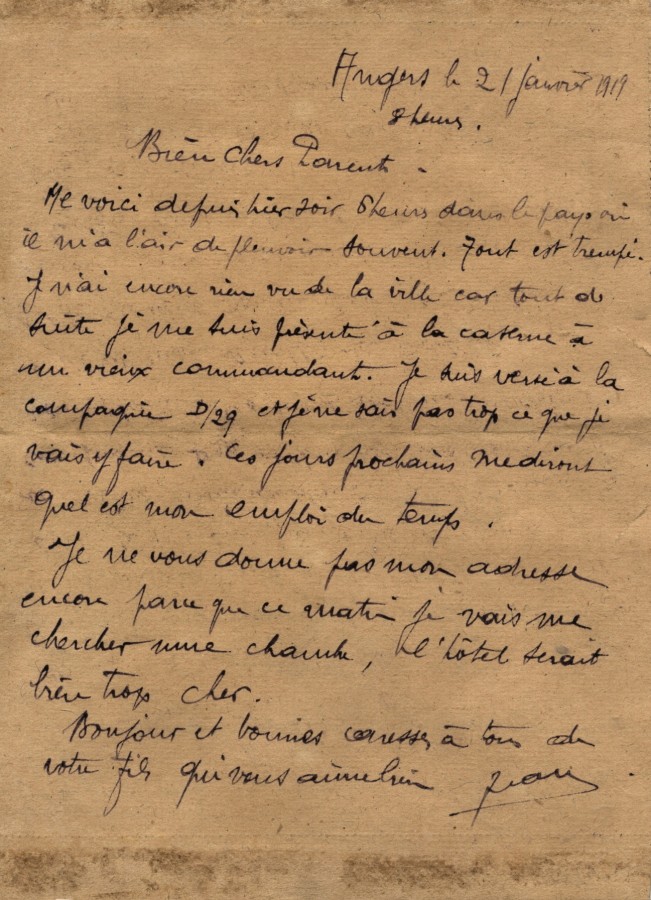 Angers le 21 janvier 1919
8 heures.
Bien chers Parents.
Me voici depuis hier soir 6 heures dans le pays où
il m'a l'air de pleuvoir souvent. Tout est trempé.
Je n'ai encore rien vu de la ville car tout de
suite je me suis présenté à la caserne à
un vieux commandant. Je suis versé à la
compagnie D/29 et je ne sais pas trop ce que je
vais y faire. Ces jours prochains me diront
quel est mon emploi du temps.
Je ne vous donne pas mon adresse
encore parce que ce matin je vais me
chercher une chambre, l'hôtel serait
bien trop cher.
Bonjour et bonnes caresses à tous de
votre fils qui vous aime bien Jean